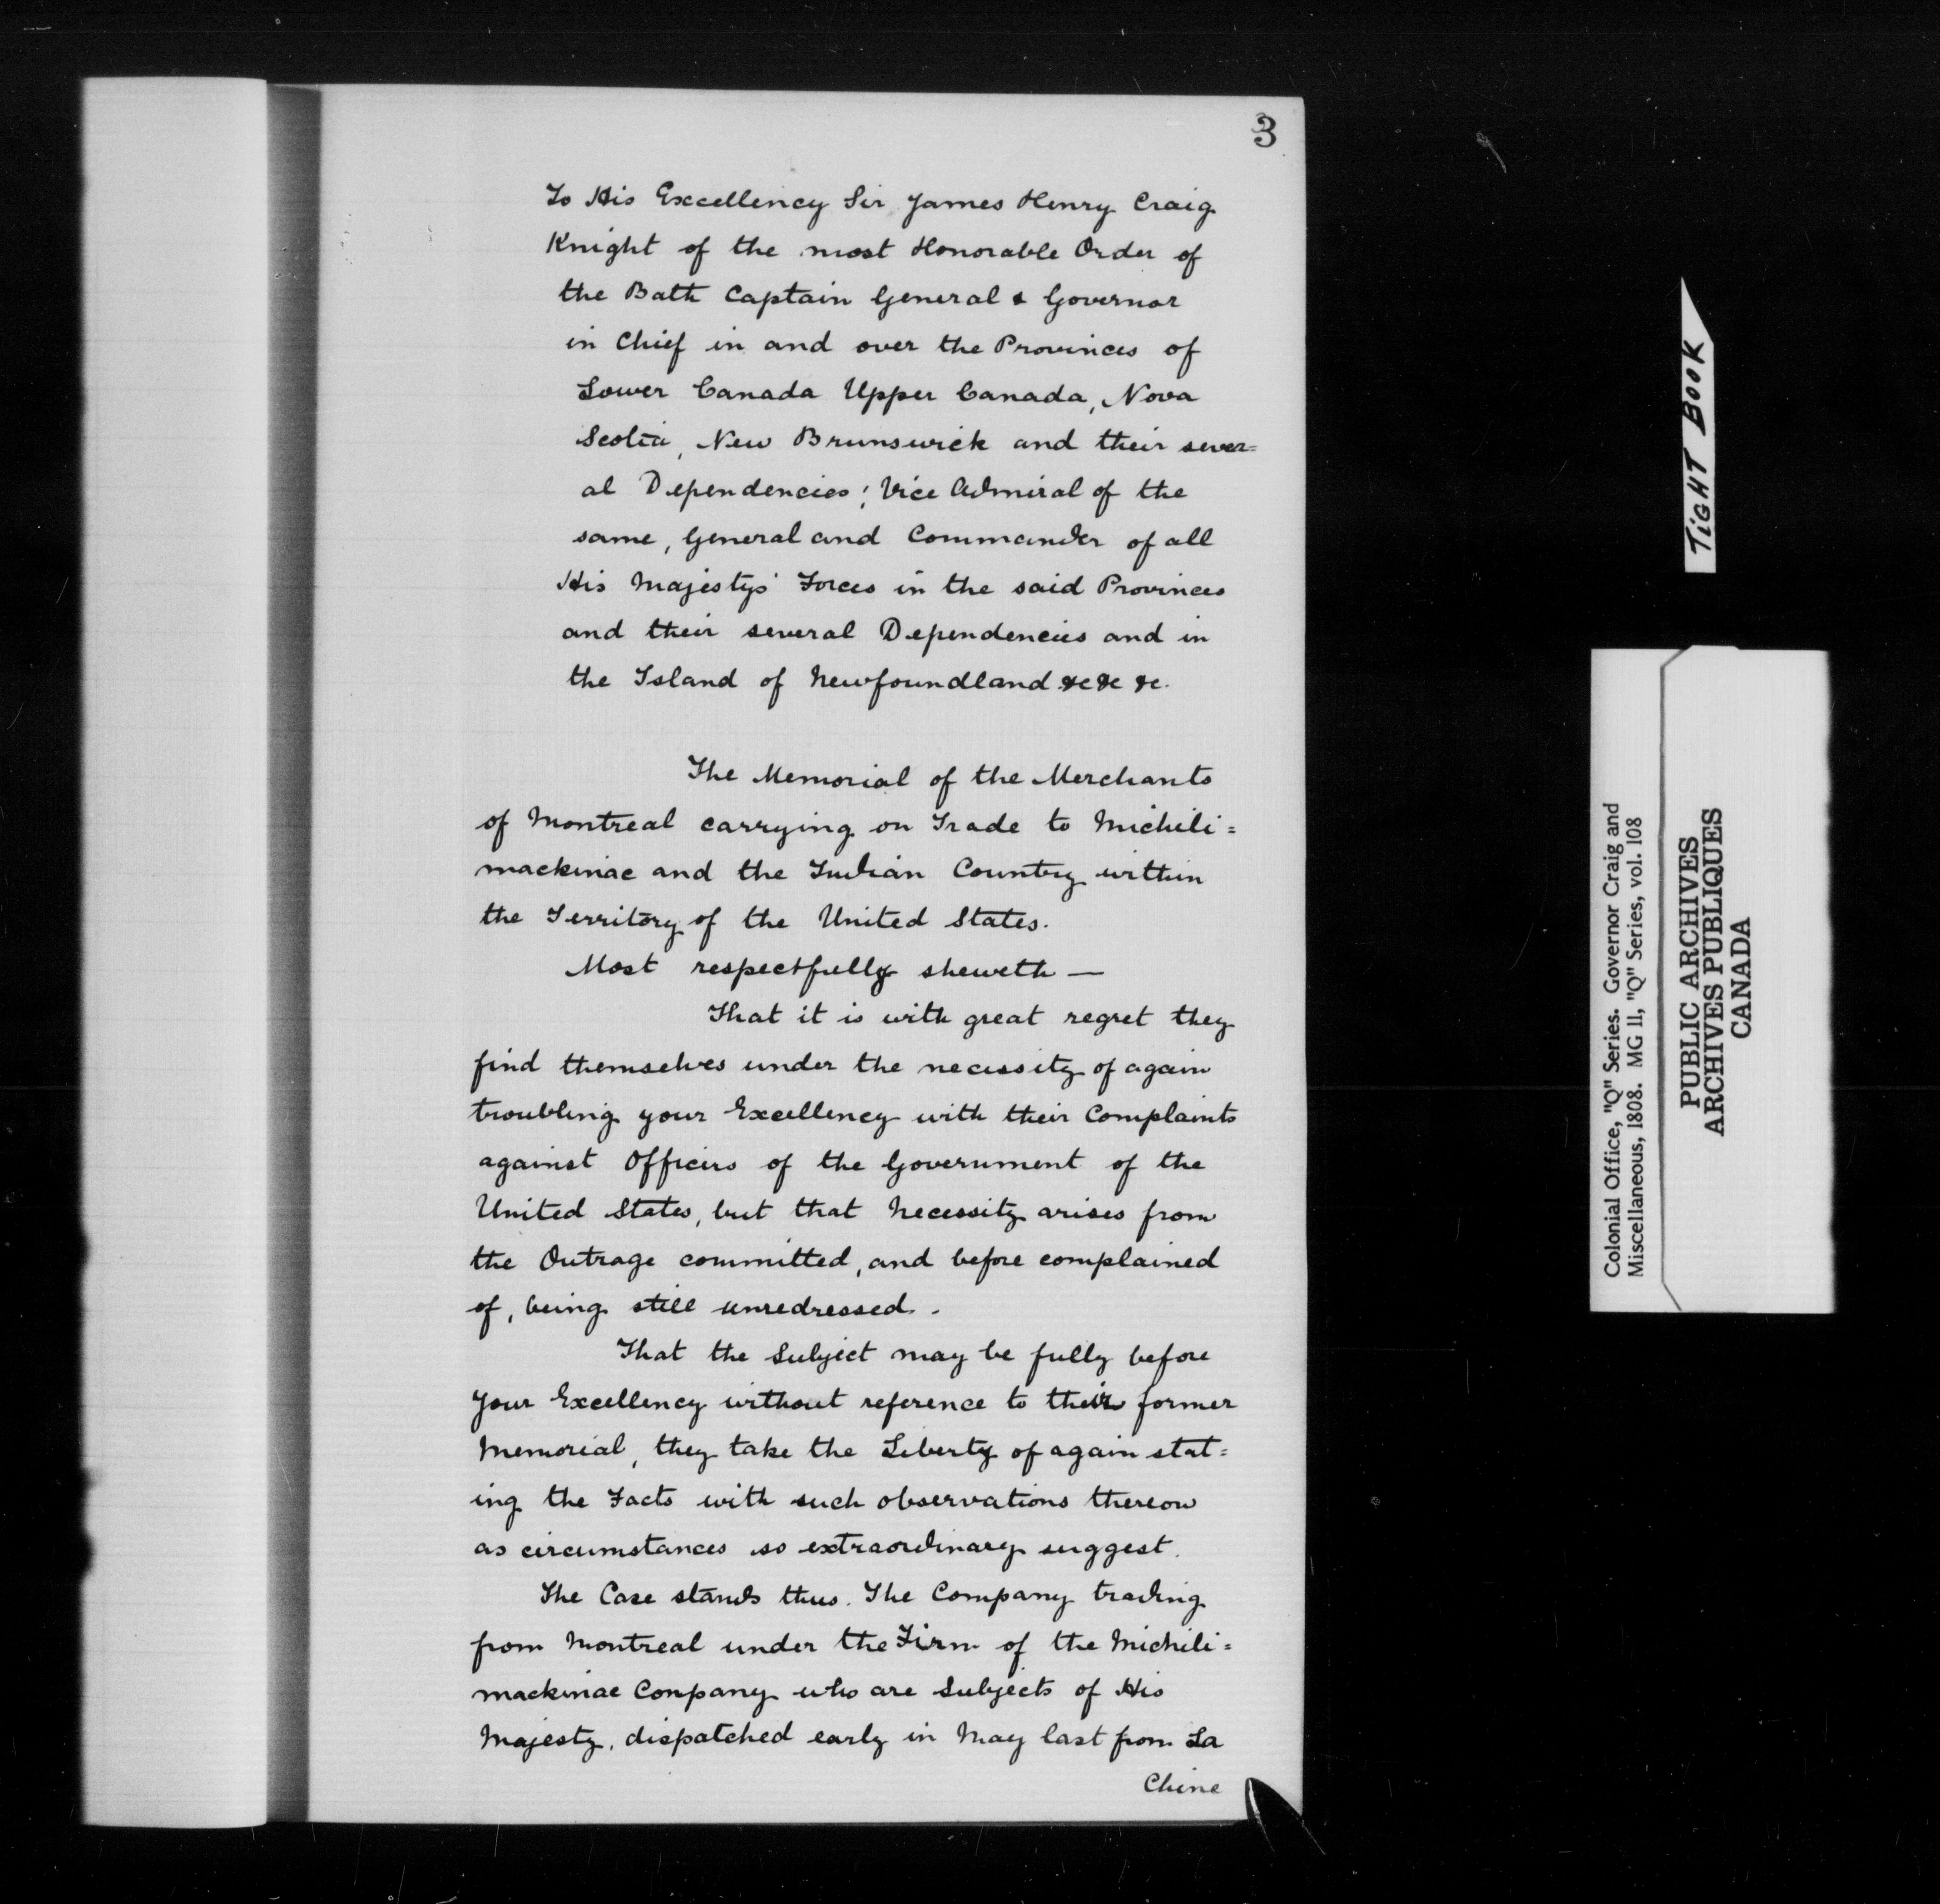 3
To His Excellency Sir James Henry Craig
Knight of the most Honorable Order of
the Bath Captain General & Governor
in Chief in and over the Provinces of
Lower Canada Upper Canada, Nova
Scotia, New Brunswick and their sever=
al Dependencies; Vice Admiral of the
same, General and Commander of all
His Majestys' Forces in the said Provinces
and their several Dependencies and in
the Island of Newfoundland &c &c &c.
The Memorial of the Merchants
of Montreal carrying on Trade to Michili=
mackinac and the Indian Country within
the Territory of the United States.
Most respectfully sheweth —
That it is with great regret they
find themselves under the necessity of again
troubling your Excellency with their Complaints
against Officers of the Government of the
United States, but that Necessity arises from
the Outrage committed, and before complained
of, being still unredressed.
That the Subject may be fully before
your Excellency without reference to their former
Memorial, they take the Liberty of again stat=
ing the Facts with such observations thereon
as circumstances so extraordinary suggest.
The Case stands thus. The Company trading
from Montreal under the Firm of the Michili=
mackinac Conpany who are Subjects of His
Majesty, dispatched early in May last from La
Chine
TiGHT BOOK
Colonial Office, "Q" Series. Governor Craig and
Miscellaneous, 1808. MG 11, "Q" Series, vol. 108
PUBLIC ARCHIVES
ARCHIVES PUBLIQUES
CANADA